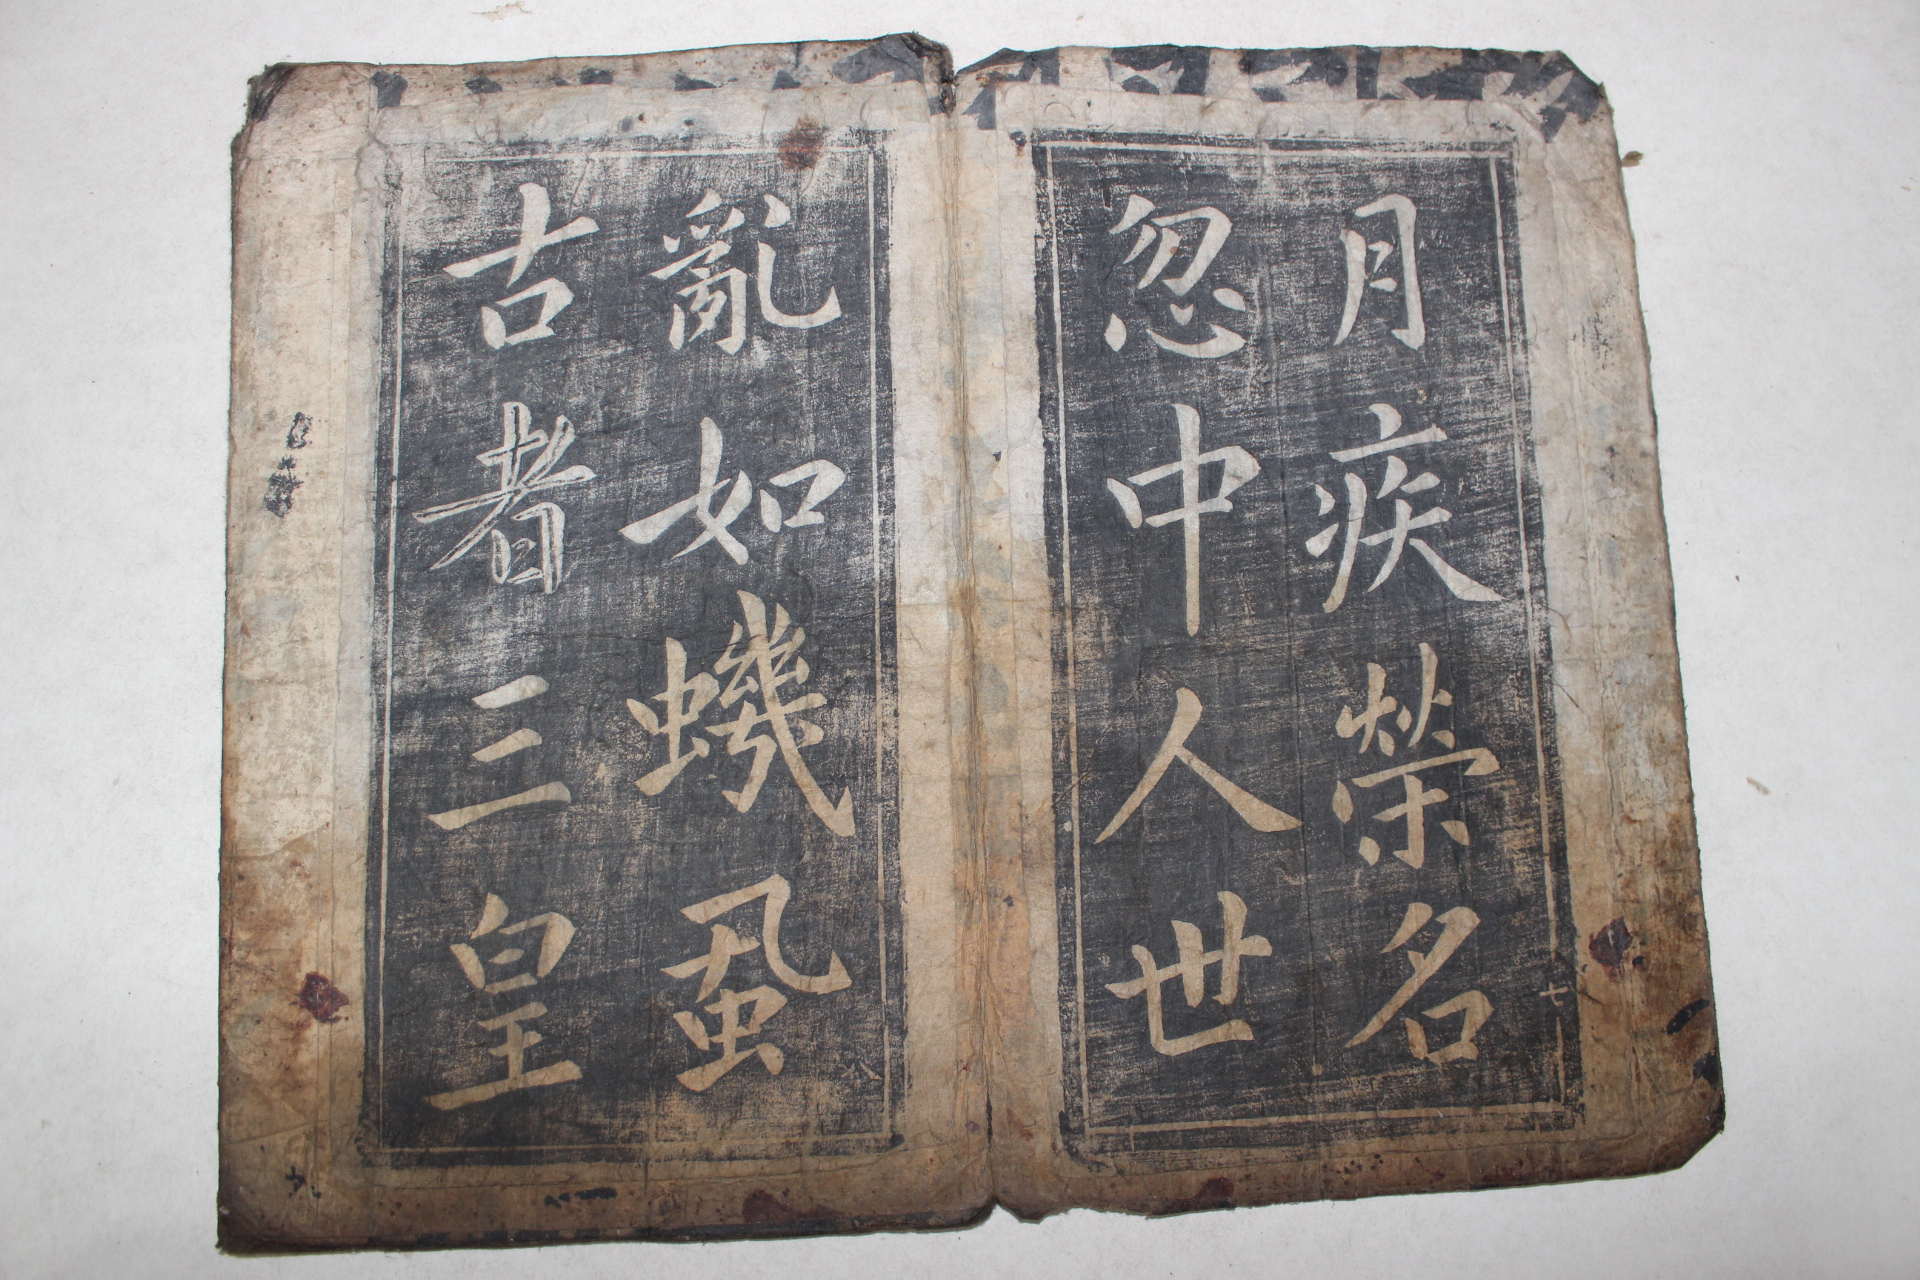 月疾榮名
忽中人世
七
亂如蟣虱
古者三皇
八